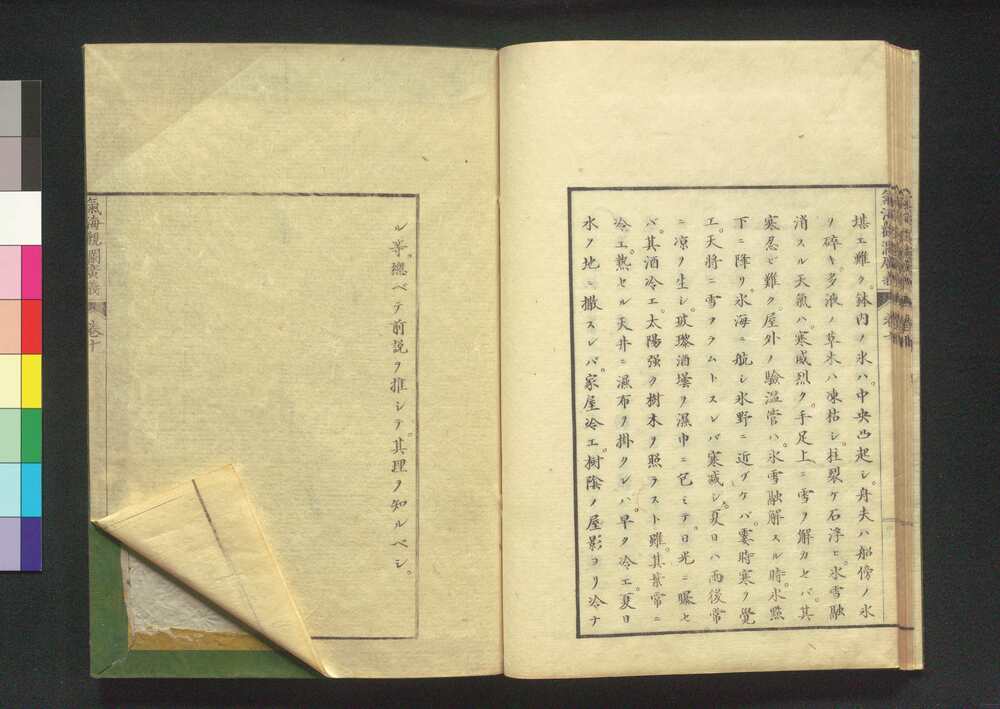 堪エ難ク。鉢内ノ氷ハ。中央凸起シ。舟夫ハ船傍ノ氷
ヲ碎キ。多液ノ草木ハ凍枯シ。柱裂ケ石浮ヒ。氷雪融
消スル天氣ハ。寒威烈ク。手足上ニ雪ヲ解カセバ。其
寒忍ビ難ク。屋外ノ驗温管ハ。氷雪融解スル時。氷點
下ニ降リ。氷海ニ航シ氷野ニ近ヅケバ。霎時寒ヲ覺
エ。天將ニ雪フラムトスレバ寒減シ。夏日ハ雨後常
ニ凉ヲ生シ。玻瓈酒壜ヲ濕巾ニ包ミテ。日光ニ曝セ
バ。其酒冷エ。太陽强ク樹木ヲ照ラスト雖。其葉常ニ
冷エ。熱セル天井ニ濕布ヲ掛クレバ。早ク冷エ。夏日
水ヲ地ニ撒スレバ。家屋冷エ。樹陰ノ屋影ヨリ冷ナ
ル等。總ベテ前説ヲ推シテ。其理ヲ知ルベシ。
氣海觀瀾廣義
卷十